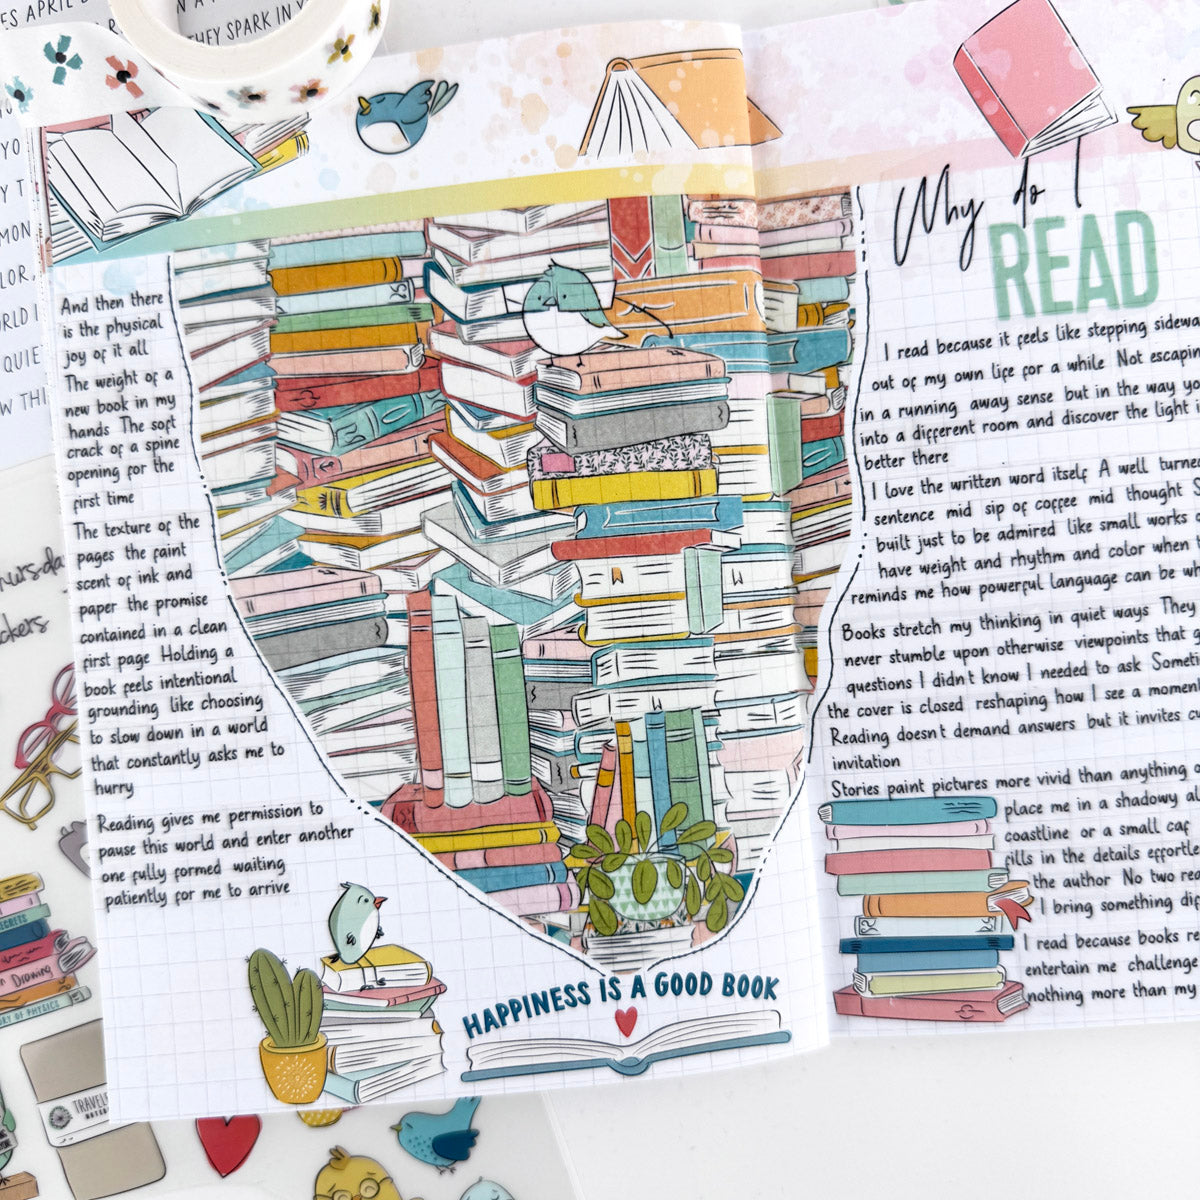 And then there
is the physical
joy of it all
The weight of a
new book in my
hands The soft
crack of a spine
opening for the
first time
The texture of the
pages the faint
scent of ink and
paper the promise
contained in a clean
first page Holding a
book feels intentional
grounding like choosing
to slow down in a world
that constantly asks me to
hurry
Reading gives me permission to
pause this world and enter another
one fully formed waiting
patiently for me to arrive
HAPPINESS IS A GOOD BOOK
Why do I
READ
I read because it feels like stepping
out of my own life for a while Not
in a running away sense but in the way
into a different room and discover the light
better there
I love the written word itself A well turned
sentence mid sip of coffee mid thought
built just to be admired like small works
have weight and rhythm and color when
reminds me how powerful language can be
Books stretch my thinking in quiet ways They
never stumble upon otherwise viewpoints that
questions I didn't know I needed to ask
the cover is closed reshaping how I see a
Reading doesn't demand answers but it invites
invitation
Stories paint pictures more vivid than anything
place me in a shadowy
coastline or a small
fills in the details
the author No two
I bring something
I read because books
entertain me challenge
nothing more than my
THEY SPARK IN
QUIET
Drawing
OF PHYSICS